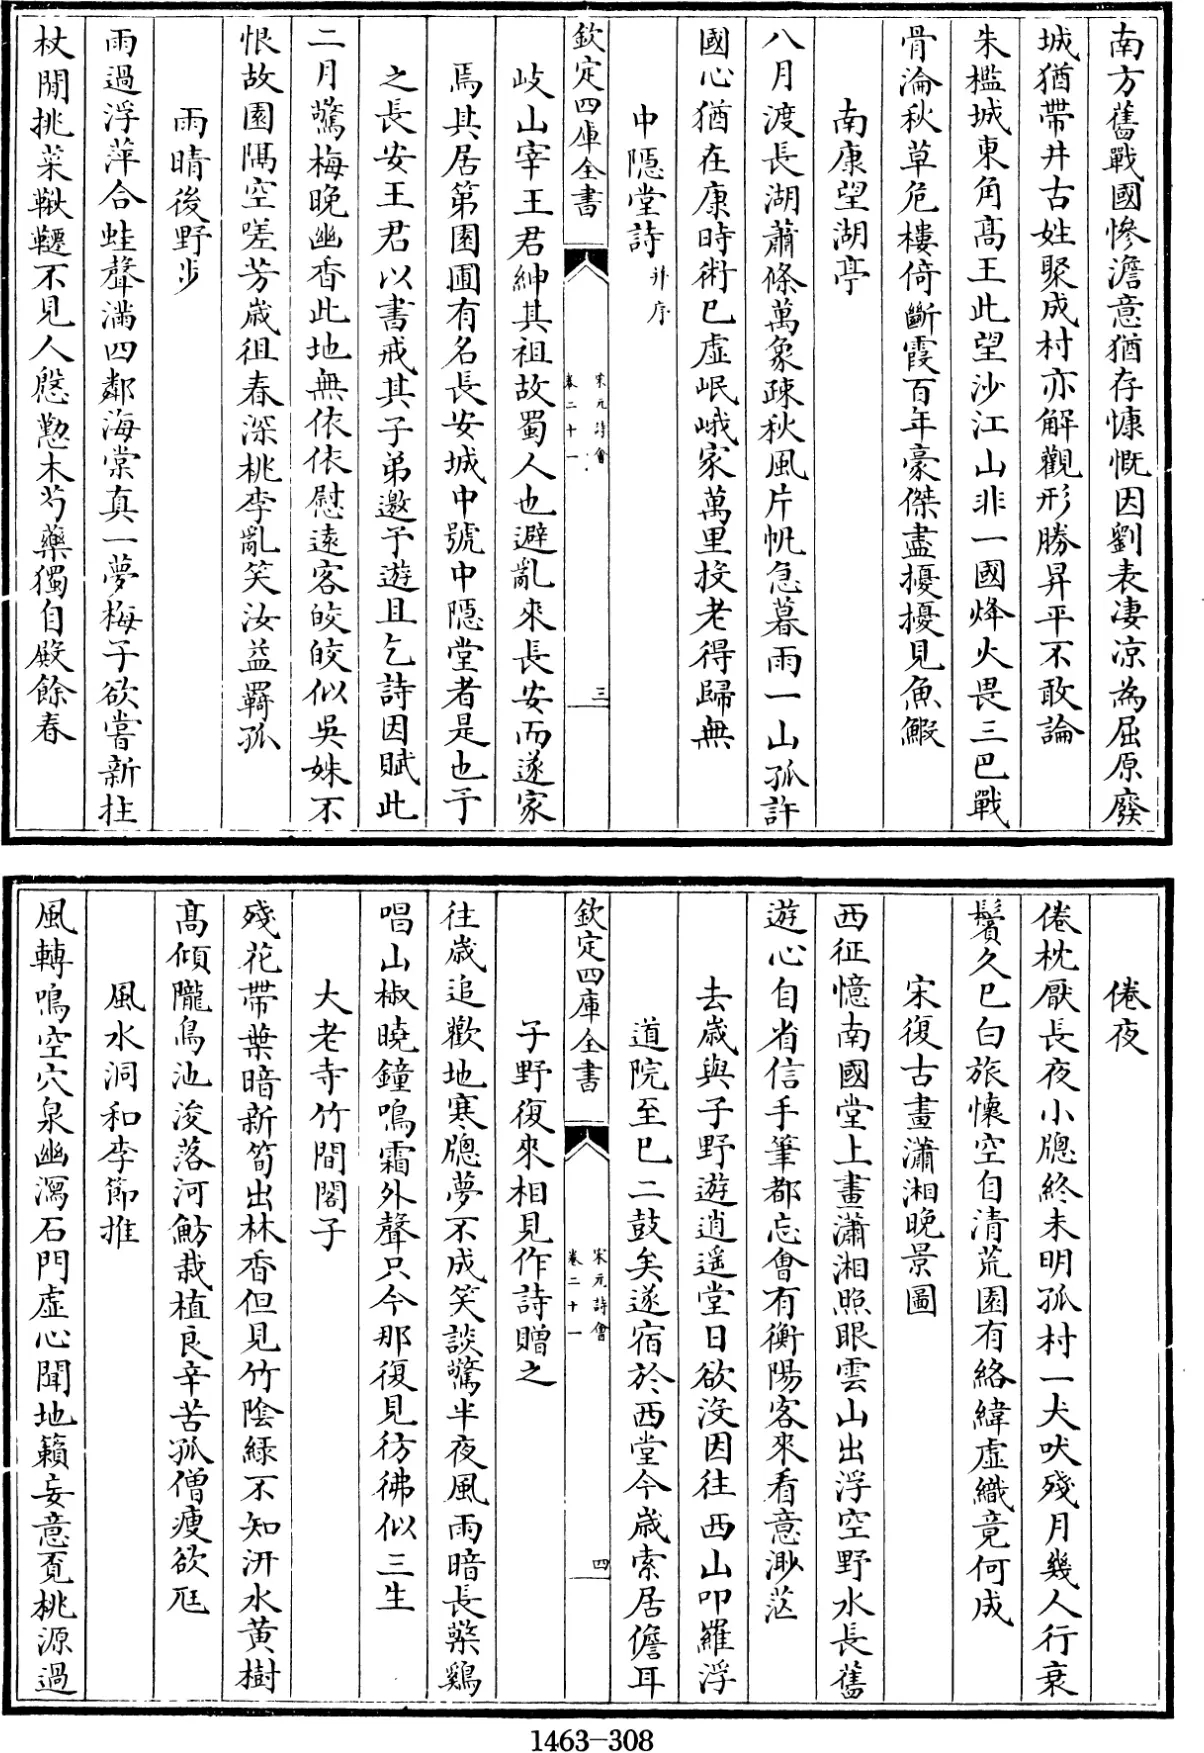 南方舊戰國慘澹意猶存慷慨因劉表凄凉為屈原廢
城猶帶井古姓聚成村亦解觀形勝昇平不敢論
朱檻城東角髙王此望沙江山非一國烽火畏三巴戰
骨淪秋草危樓倚斷霞百年豪傑盡擾擾見魚鰕
南康望湖亭
八月渡長湖蕭條萬象疎秋風片帆急暮雨一山孤許
國心猶在康時術已虛岷峨家萬里投老得歸無
中隠堂詩并序
欽定四庫全書
宋元詩會
卷二十一
三
岐山宰王君紳其祖故蜀人也避亂來長安而遂家
焉其居第園圃有名長安城中號中隠堂者是也予
之長安王君以書戒其子弟邀予遊且乞詩因賦此
二月驚梅晚幽香此地無依依慰遠客皎皎似吳姝不
恨故園隔空嗟芳嵗徂春深桃李亂笑汝益羇孤
雨晴後野步
雨過浮萍合蛙聲滿四鄰海棠真一夢梅子欲嘗新拄
杖閒挑菜鞦韆不見人慇懃木芍藥獨自殿餘春
倦夜
倦枕厭長夜小牕終未明孤村一犬吠殘月幾人行衰
鬢久已白旅懷空自清荒園有絡緯虛織竟何成
宋復古畫瀟湘晚景圖
西征憶南國堂上畫瀟湘照眼雲山出浮空野水長舊
遊心自省信手筆都忘會有衡陽客來看意渺茫
去嵗與子野遊逍遥堂日欲没因往西山叩羅浮
道院至已二鼓矣遂宿於西堂今嵗索居儋耳
欽定四庫全書
宋元詩會
卷二十一
四
子野復來相見作詩贈之
往嵗追歡地寒牕夢不成笑談驚半夜風雨暗長檠鷄
唱山椒曉鐘鳴霜外聲只今那復見彷彿似三生
大老寺竹間閣子
殘花帶葉暗新筍出林香但見竹陰緑不知汧水黃樹
髙傾隴鳥池浚落河魴栽植良辛苦孤僧瘦欲尫
風水洞和李節推
風轉鳴空穴泉幽瀉石門虛心聞地籟妄意覓桃源過
1463—308